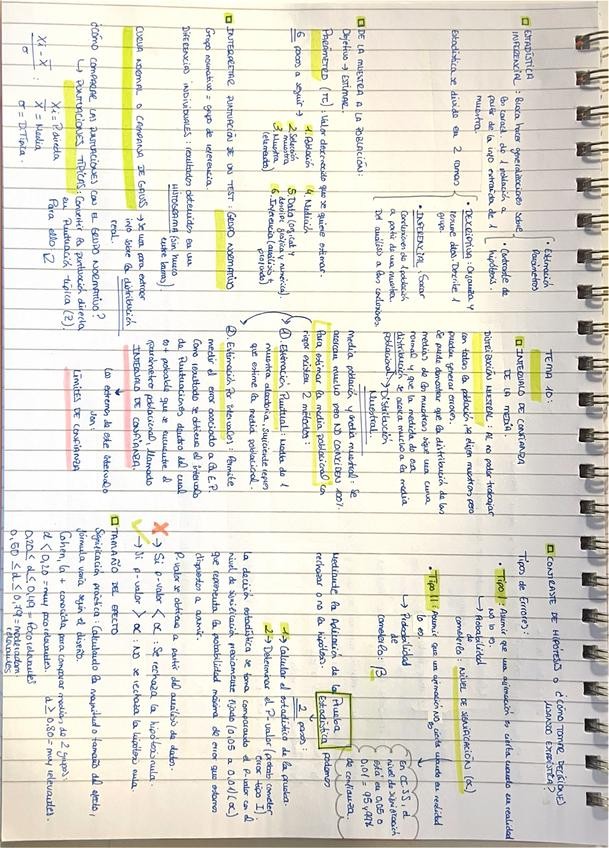 ESTADÍSTICA
INFERENCIAL: Busca hacer generalizaciones sobre
las caract. de 1 población a
partir de la info extraída de 1
muestra.
• Estimación
Parámetros
• Contraste de
hipótesis.
Estadística se divide en 2 ramas:
• DESCRIPTIVA: Organiza y
resume datos. Describe 1
grupo.
• INFERENCIAL: Sacar
conclusiones de la población
a partir de una muestra.
Del análisis a las conclusiones.
DE LA MUESTRA A LA POBLACIÓN:
Objetivo → ESTIMAR.
PARÁMETRO (π): Valor desconocido que se quiere estimar.
6 pasos a seguir →
1. Población
2. Selección
muestra
3. Muestra
(elementos)
4. Medición
5. Datos (
descrip. gráfica y numérica).
6. Inferencia (análisis +
profundo)
INTERPRETAR PUNTUACIÓN DE UN TEST: GRUPO NORMATIVO
Grupo normativo = grupo de referencia
DIFERENCIAS INDIVIDUALES: resultados obtenidos en un
HISTOGRAMA (sin hueco
entre barras)
CURVA NORMAL O CAMPANA DE GAUSS → Se usa para extraer
info sobre la distribución
real.
¿CÓMO COMPARAR LAS PUNTUACIONES CON EL GRUPO NORMATIVO?
↳ PUNTUACIONES TÍPICAS: Convertir la puntuación directa
en Puntuación típica (Z).
Xi - X̄
σ
Xi = P. directa
X̄ = Media
σ = D. Típica.
Para ello Z
TEMA 10:
INTERVALO DE CONFIANZA
DE LA MEDIA.
DISTRIBUCIÓN MUESTRAL: Al no poder trabajar
con toda la población, se eligen muestras pero
pueden generar errores.
Se puede demostrar que la distribución de las
medias de las muestras sigue una curva
normal y que la media de esa
distribución se acerca mucho a la media
poblacional → Distribución
Muestral.
Media población y media muestral: Se
acercan mucho pero NO COINCIDEN 100%.
Para estimar la media poblacional con
rigor existen 2 métodos:
1. Estimación Puntual: Media de 1
muestra aleatoria, suficiente
que estime la media poblacional.
2. Estimación Por Intervalos: Permite
medir el error asociado a la E.P.
Como resultado se obtiene el intervalo
de Puntuaciones dentro del cual
es + probable que se encuentre el
parámetro poblacional, llamado
INTERVALO DE CONFIANZA.
Los extremos de este intervalo
son:
LÍMITES DE CONFIANZA
CONTRASTE DE HIPÓTESIS O ¿CÓMO TOMAR DECISIONES
Tipos de Errores:
• Tipo I: Asumir que una afirmación es cierta cuando en realidad
no lo es.
↳ Probabilidad
de
cometerlo: NIVEL DE SIGNIFICACIÓN (α)
• Tipo II: Asumir que una afirmación no es cierta cuando en realidad
lo es.
↳ Probabilidad
de
cometerlo: β
En CC.SS, el
nivel de significación
está en 0,05 o
0,01 = 95 y 99%
de confianza.
Mediante la aplicación de la Prueba Estadística podemos
rechazar o no la hipótesis.
2 pasos:
1 → Calcular el estadístico de la prueba.
2 → Determinar el P-valor (prob. cometer
error tipo I).
La decisión estadística se toma comparando el P-valor con el
nivel de significación previamente fijado (0,05 o 0,01) (α)
que representa la probabilidad máxima de error que estamos
dispuestos a asumir.
P-valor se obtiene a partir del análisis de datos.
✗ → Si p-valor < α: Se rechaza la hipótesis nula.
✓ → Si p-valor > α: No se rechaza la hipótesis nula.
TAMAÑO DEL EFECTO
Significación práctica: Calculando la magnitud o tamaño del efecto,
fórmula varía según el diseño.
Cohen, la + conocida para comparar medias de 2 grupos:
d < 0,20 = muy poco relevantes.
0,20 ≤ d ≤ 0,49 = Poco relevantes
0,50 ≤ d ≤ 0,79 = moderadam.
relevantes
d ≥ 0,80 = muy relevantes.